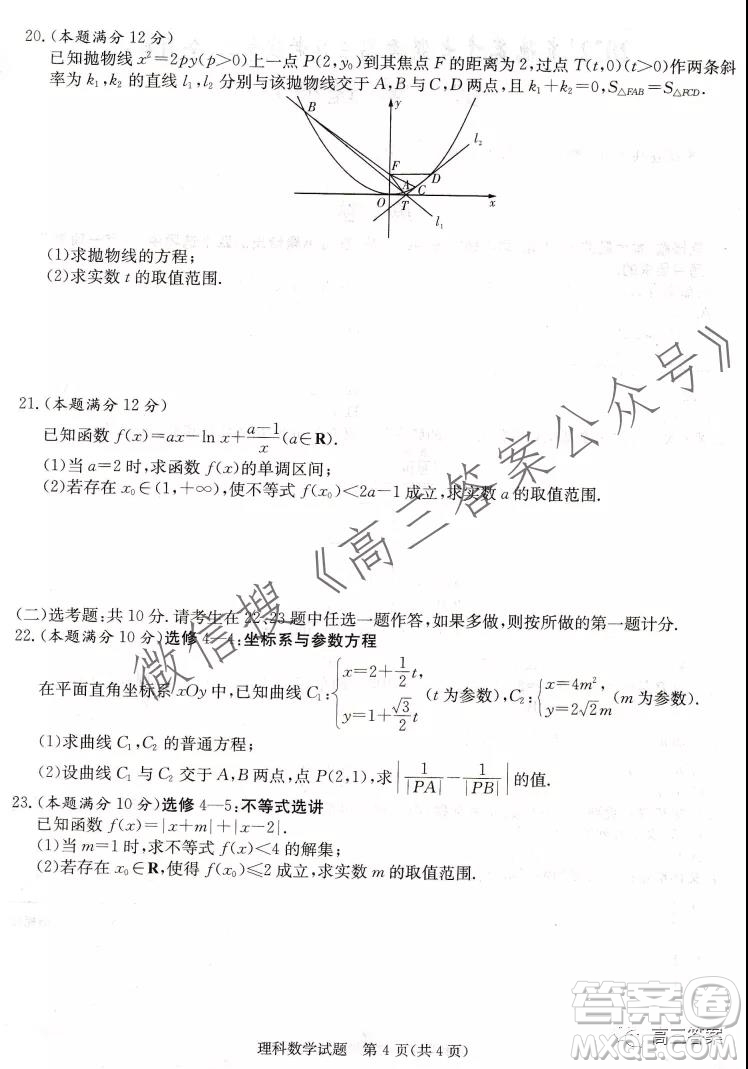 20.(本题满分12分)
已知抛物线 x²=2py(p>0)上一点 P(2,y₀)到其焦点 F 的距离为2,过点 T(t,0)(t>0)作两条斜
率为 k₁,k₂ 的直线 l₁,l₂ 分别与该抛物线交于 A,B 与 C,D 两点,且 k₁+k₂=0,S△FAB=S△FCD.
B
y
l₂
F
D
A
C
O
T
x
l₁
(1)求抛物线的方程;
(2)求实数 t 的取值范围.
21.(本题满分12分)
已知函数 f(x)=ax-ln x+(a-1)/x(a∈R).
(1)当 a=2 时,求函数 f(x)的单调区间;
(2)若存在 x₀∈(1,+∞),使不等式 f(x₀)<2a-1 成立,求实数 a 的取值范围.
微信搜《高三答案公众号》
(二)选考题:共10分.请考生在22、23题中任选一题作答,如果多做,则按所做的第一题计分.
22.(本题满分10分)选修4—4:坐标系与参数方程
在平面直角坐标系 xOy 中,已知曲线 C₁:{x=2+1/2 t, y=1+√3/2 t (t 为参数),C₂:{x=4m², y=2√2m (m 为参数).
(1)求曲线 C₁,C₂ 的普通方程;
(2)设曲线 C₁ 与 C₂ 交于 A,B 两点,点 P(2,1),求 |1/|PA|-1/|PB|| 的值.
23.(本题满分10分)选修4—5:不等式选讲
已知函数 f(x)=|x+m|+|x-2|.
(1)当 m=1 时,求不等式 f(x)<4 的解集;
(2)若存在 x₀∈R,使得 f(x₀)≤2 成立,求实数 m 的取值范围.
理科数学试题 第4页(共4页)
高三答案
答案圈
MXQE.COM